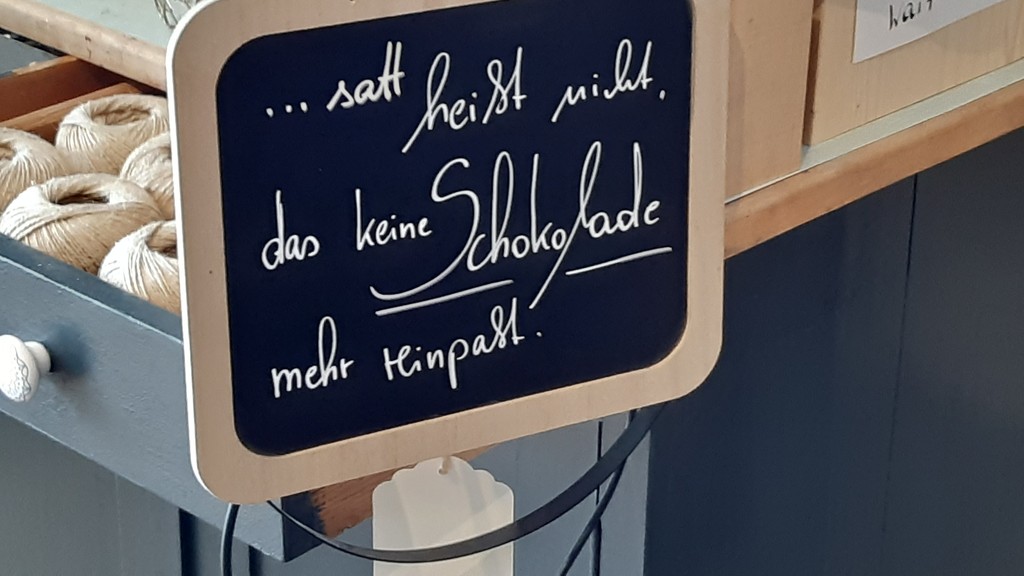 ... satt heißt nicht,
das keine Schokolade
mehr reinpaßt.